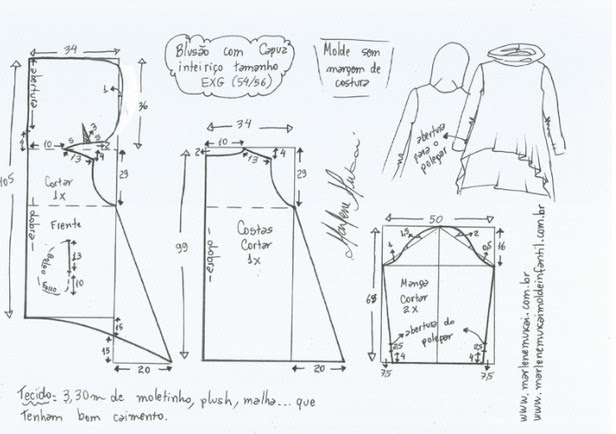 34
Blusão com Capuz
inteiriço tamanho
EXG (54/56)
Molde sem
margem de
costura
abertura
1
36
3
10
5
2
13
4
105
29
Cortar
1x
dobra
Frente
Bolso
Fosso
13
10
15
15
20
34
10
2
13
4
29
99
dobra
Costas
Cortar
1x
20
Marlene Mukai
abertura
para o
polegar
50
1,5
2
1
0,5
16
68
Manga
Cortar
2x
abertura do
polegar
2,5
4
7,5
2,5
4
7,5
www.marlenemukai.com.br
www.marlenemukaimoldeinfantil.com.br
Tecido= 3,30m de moletinho, plush, malha... que
Tenham bom caimento.